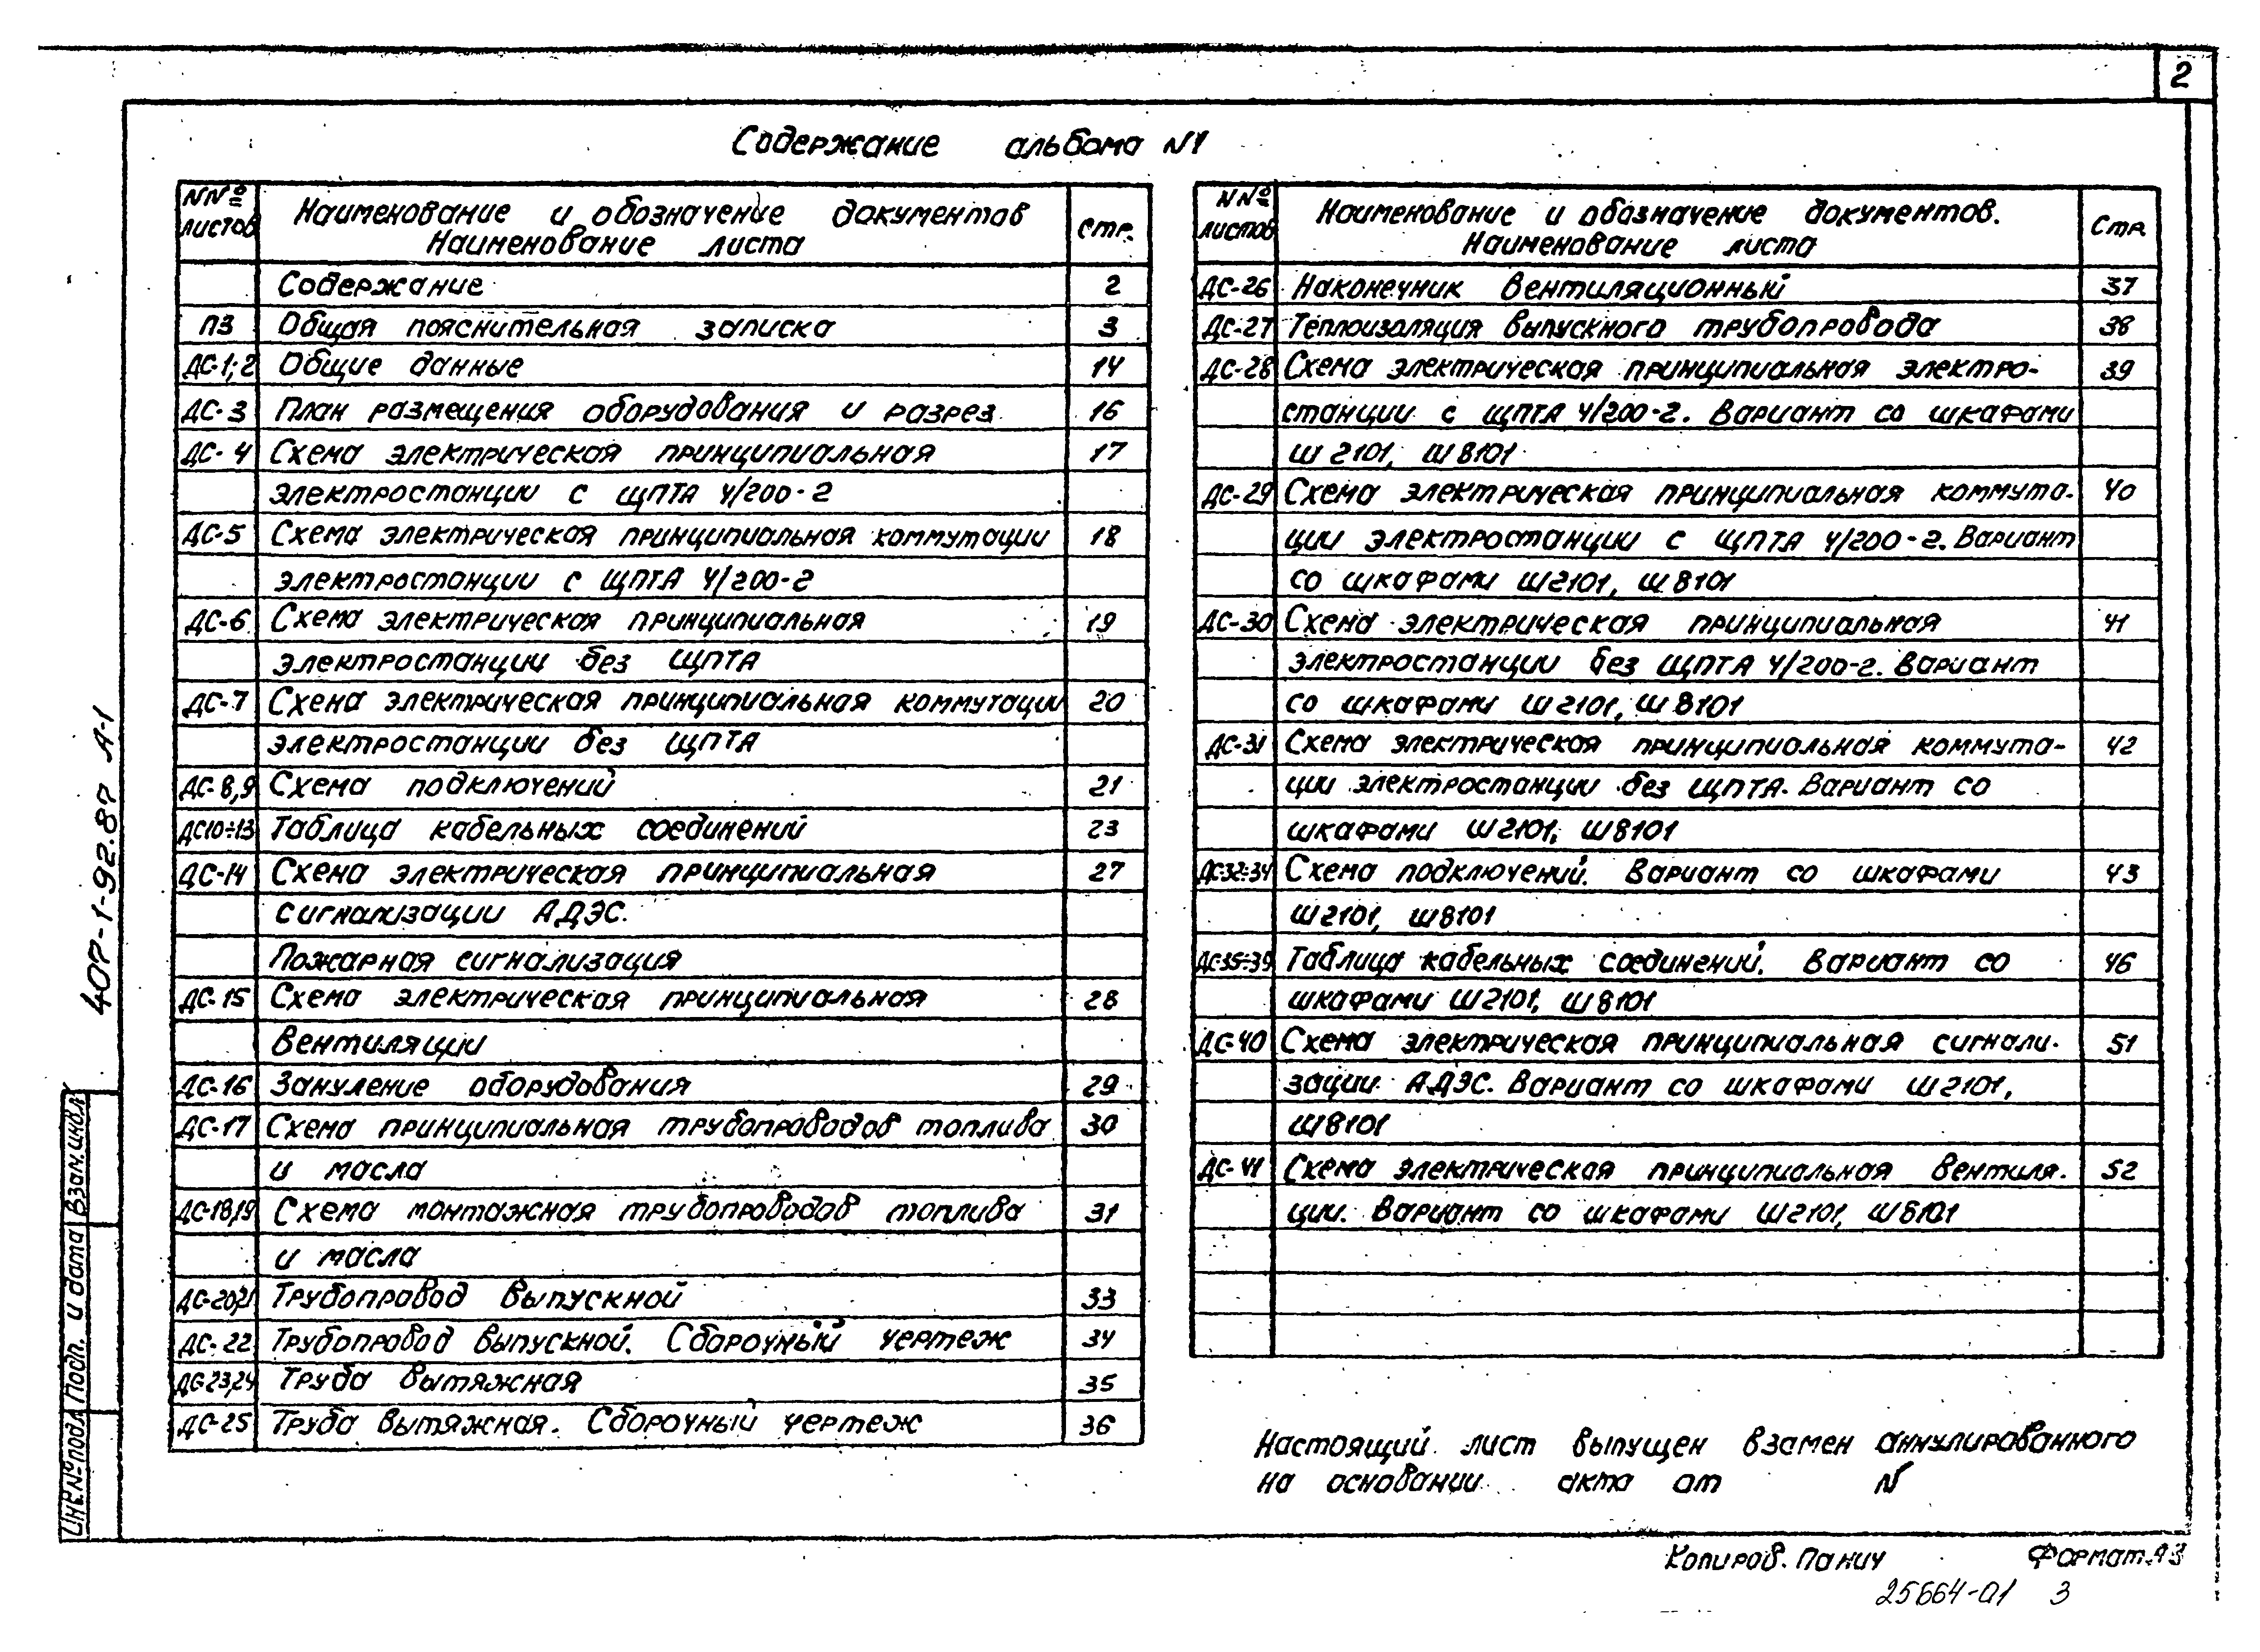 2
Содержание альбома N1
NNº листов Наименование и обозначение документов Наименование листа стр.
Содержание 2
ПЗ Общая пояснительная записка 3
ДС-1;2 Общие данные 14
ДС-3 План размещения оборудования и разрез 16
ДС-4 Схема электрическая принципиальная 17
электростанции с ЩПТА 4/200-2
ДС-5 Схема электрическая принципиальная коммутации 18
электростанции с ЩПТА 4/200-2
ДС-6 Схема электрическая принципиальная 19
электростанции без ЩПТА
ДС-7 Схема электрическая принципиальная коммутации 20
электростанции без ЩПТА
ДС-8,9 Схема подключений 21
ДС10÷13 Таблица кабельных соединений 23
ДС-14 Схема электрическая принципиальная 27
сигнализации АДЭС.
Пожарная сигнализация
ДС-15 Схема электрическая принципиальная 28
вентиляции
ДС-16 Зануление оборудования 29
ДС-17 Схема принципиальная трубопроводов топлива 30
и масла
ДС-18,19 Схема монтажная трубопроводов топлива 31
и масла
ДС-20,21 Трубопровод выпускной 33
ДС-22 Трубопровод выпускной. Сборочный чертеж 34
ДС-23,24 Труба вытяжная 35
ДС-25 Труба вытяжная. Сборочный чертеж 36
NNº листов Наименование и обозначение документов. Наименование листа Стр.
ДС-26 Наконечник вентиляционный 37
ДС-27 Теплоизоляция выпускного трубопровода 38
ДС-28 Схема электрическая принципиальная электро- 39
станции с ЩПТА 4/200-2. Вариант со шкафами
Ш2101, Ш8101
ДС-29 Схема электрическая принципиальная коммута- 40
ции электростанции с ЩПТА 4/200-2. Вариант
со шкафами Ш2101, Ш8101
ДС-30 Схема электрическая принципиальная 41
электростанции без ЩПТА 4/200-2. Вариант
со шкафами Ш2101, Ш8101
ДС-31 Схема электрическая принципиальная коммута- 42
ции электростанции без ЩПТА. Вариант со
шкафами Ш2101, Ш8101
ДС-32÷34 Схема подключений. Вариант со шкафами 43
Ш2101, Ш8101
ДС-35÷39 Таблица кабельных соединений. Вариант со 46
шкафами Ш2101, Ш8101
ДС-40 Схема электрическая принципиальная сигнали- 51
зации АДЭС. Вариант со шкафами Ш2101,
Ш8101
ДС-41 Схема электрическая принципиальная вентиля- 52
ции. Вариант со шкафами Ш2101, Ш8101
Настоящий лист выпущен взамен аннулированного
на основании акта от N
407-1-92.87 А-1
Взам.инв.№
Подп. и дата
Инв.№подл
Копиров. Панич Формат А3
25664-01 3